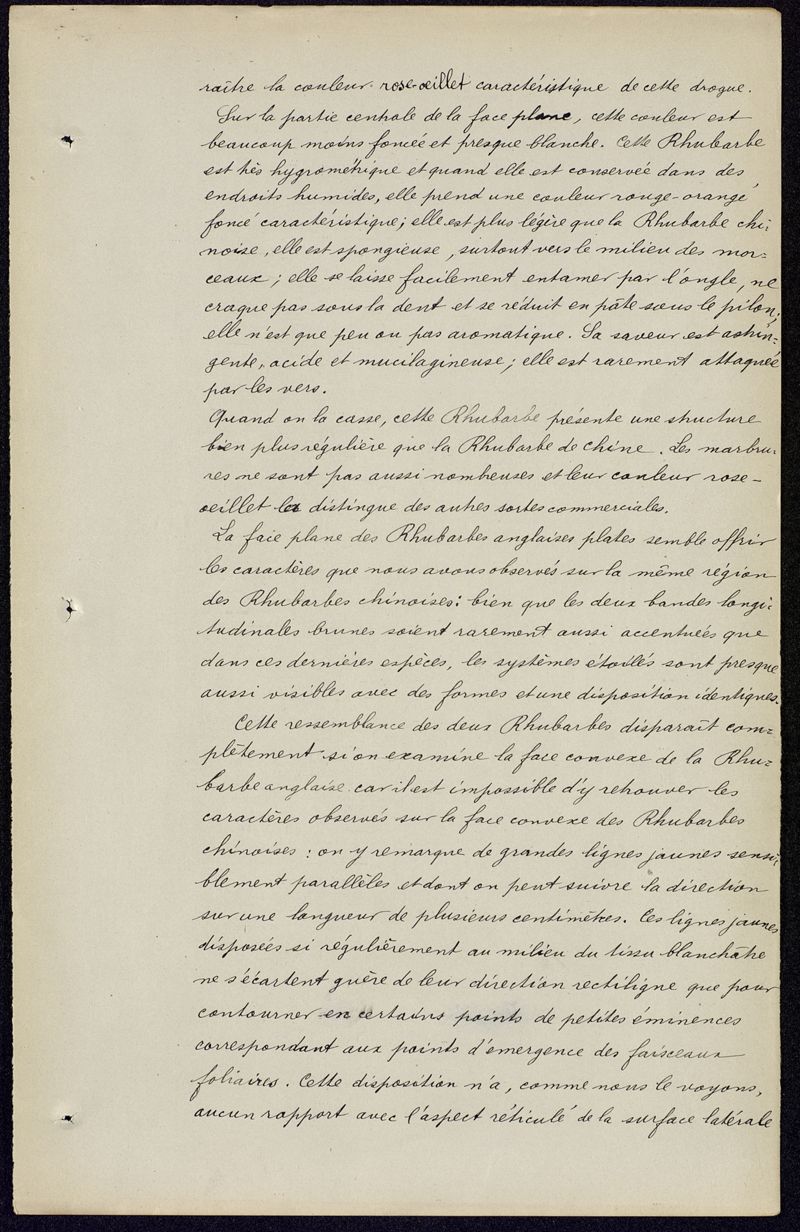 raître la couleur rose-œillet caractéristique de cette drogue.
Sur la partie centrale de la face plane, cette couleur est
beaucoup moins foncée et presque blanche. Cette Rhubarbe
est très hygrométrique et quand elle est conservée dans des
endroits humides, elle prend une couleur rouge-orangé
foncé caractéristique; elle est plus légère que la Rhubarbe chi-
noise, elle est spongieuse, surtout vers le milieu des mor-
ceaux; elle se laisse facilement entamer par l'ongle, ne
craque pas sous la dent et se réduit en pâte sous le pilon;
elle n'est que peu ou pas aromatique. Sa saveur est astrin-
gente, acide et mucilagineuse; elle est rarement attaquée
par les vers.
Quand on la casse, cette Rhubarbe présente une structure
bien plus régulière que la Rhubarbe de Chine. Les marbru-
res ne sont pas aussi nombreuses et leur couleur rose-
œillet les distingue des autres sortes commerciales.
La face plane des Rhubarbes anglaises plates semble offrir
les caractères que nous avons observés sur la même région
des Rhubarbes chinoises: bien que les deux bandes longi-
tudinales brunes soient rarement aussi accentuées que
dans ces dernières espèces, les systèmes étoilés sont presque
aussi visibles avec des formes et une disposition identiques.
Cette ressemblance des deux Rhubarbes disparaît com-
plètement si on examine la face convexe de la Rhu-
barbe anglaise car il est impossible d'y retrouver les
caractères observés sur la face convexe des Rhubarbes
chinoises: on y remarque de grandes lignes jaunes sensi-
blement parallèles et dont on peut suivre la direction
sur une longueur de plusieurs centimètres. Ces lignes jaunes
disposées si régulièrement au milieu du tissu blanchâtre
ne s'écartent guère de leur direction rectiligne que pour
contourner en certains points de petites éminences
correspondant aux points d'émergence des faisceaux
foliaires. Cette disposition n'a, comme nous le voyons,
aucun rapport avec l'aspect réticulé de la surface latérale